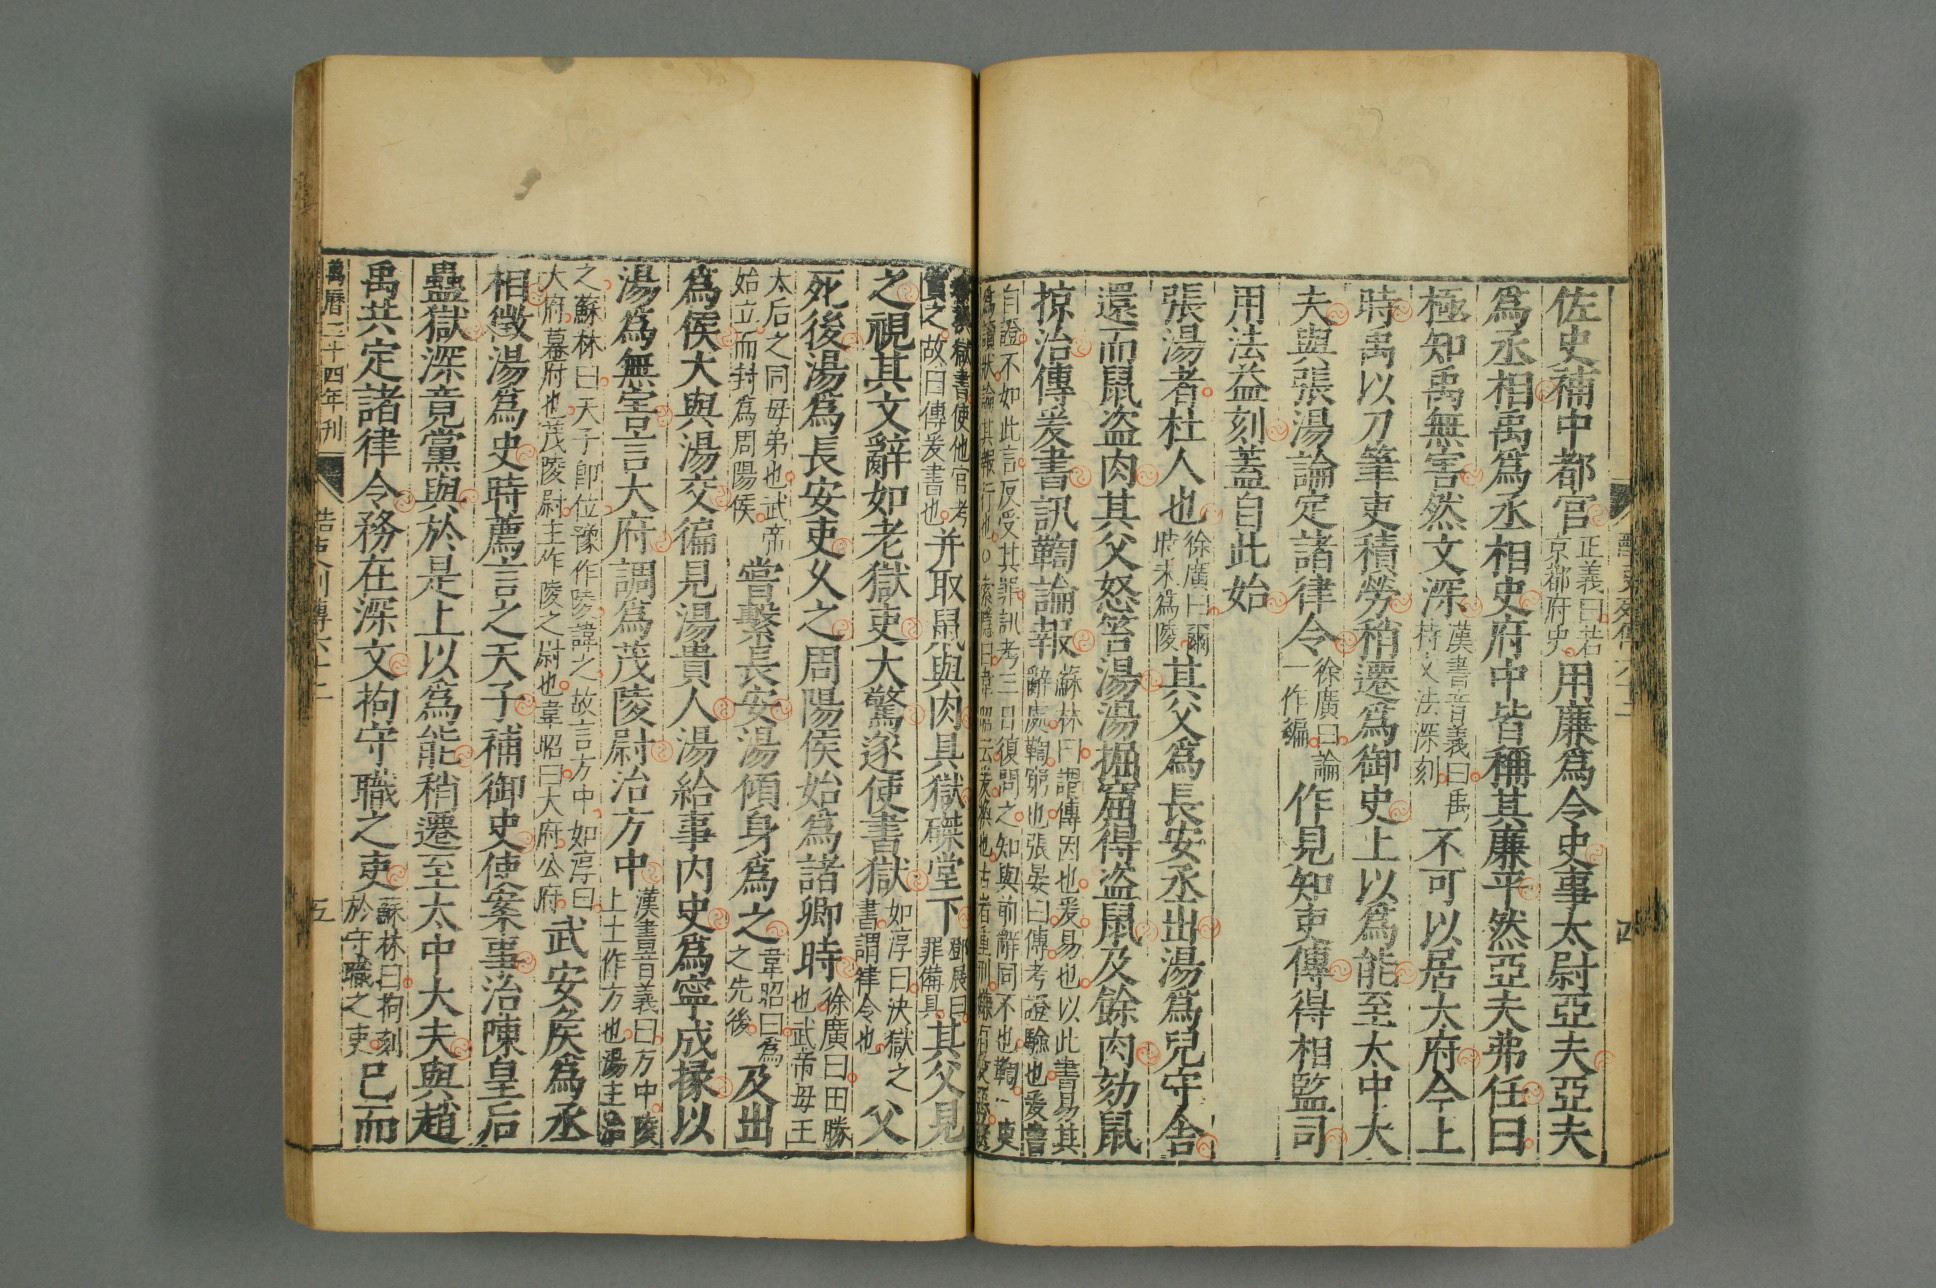 酷吏列傳六十二
四
佐史補中都官正義曰若京都府史用廉爲令史事太尉亞夫亞夫
爲丞相禹爲丞相史府中皆稱其廉平然亞夫弗任曰
極知禹無害然文深漢書音義曰禹持文法深刻不可以居大府今上
時禹以刀筆吏積勞稍遷爲御史上以爲能至太中大
夫與張湯論定諸律令徐廣曰論一作編作見知吏傳得相監司
用法益刻蓋自此始
張湯者杜人也徐廣曰爾時未爲陵其父爲長安丞出湯爲兒守舍
還而鼠盜肉其父怒笞湯湯掘窟得盜鼠及餘肉劾鼠
掠治傳爰書訊鞫論報蘇林曰謂傳因也爰易也以此書易其辭處鞫窮也張晏曰傳考證驗也爰書
自證不如此言反受其罪訊考三日復問之知與前辭同不也鞫一吏爲讀狀論其報行也○索隱曰韋昭云爰換也古者重刑嫌有愛惡
獄書使他官考實之故曰傳爰書也并取鼠與肉具獄磔堂下鄧展曰罪備具其父見
之視其文辭如老獄吏大驚遂使書獄如淳曰決獄之書謂律令也父
死後湯爲長安吏久之周陽侯始爲諸卿時徐廣曰田勝也武帝母王
太后之同母弟也武帝始立而封爲周陽侯嘗繫長安湯傾身爲之韋昭曰爲之先後及出
爲侯大與湯交徧見湯貴人湯給事內史爲寧成掾以
湯爲無害言大府調爲茂陵尉治方中漢書音義曰方中陵上土作方也湯主治
之蘇林曰天子卽位豫作陵諱之故言方中如淳曰大府幕府也茂陵尉主作陵之尉也韋昭曰大府公府武安侯爲丞
相徵湯爲史時薦言之天子補御史使案事治陳皇后
蠱獄深竟黨與於是上以爲能稍遷至太中大夫與趙
禹共定諸律令務在深文拘守職之吏蘇林曰拘刻於守職之吏已而
萬曆二十四年刊
酷吏列傳六十二
五